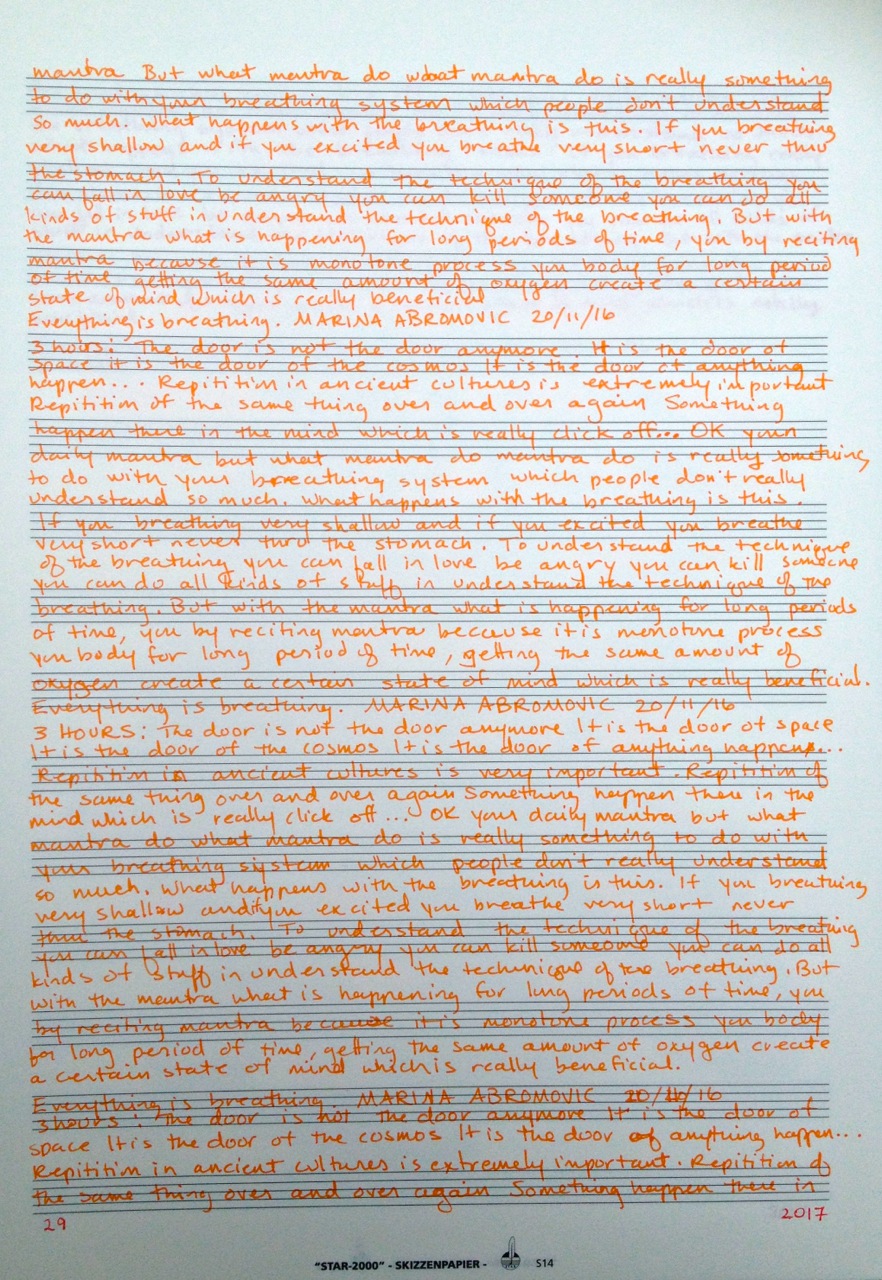 mantra But what mantra do woat mantra do is really something
to do with your breathing system which people don't understand
so much. What happens with the breathing is this. If you breathing
very shallow and if you excited you breathe very short never thru
the stomach. To understand the technique of the breathing you
can fall in love be angry you can kill someone you can do all
kinds of stuff in understand the technique of the breathing. But with
the mantra what is happening for long periods of time, you by reciting
mantra because it is monotone process you body for long period
of time getting the same amount of oxygen create a certain
state of mind which is really beneficial
Everything is breathing. MARINA ABROMOVIC 20/11/16
3 hours: The door is not the door anymore. It is the door of
space it is the door of the cosmos It is the door of anything
happen... Repitition in ancient cultures is extremely important
Repitition of the same thing over and over again Something
happen there in the mind which is really click off... OK your
daily mantra but what mantra do mantra do is really something
to do with your breathing system which people don't really
understand so much. What happens with the breathing is this.
If you breathing very shallow and if you excited you breathe
very short never thru the stomach. To understand the technique
of the breathing you can fall in love be angry you can kill someone
you can do all kinds of stuff in understand the technique of the
breathing. But with the mantra what is happening for long periods
of time, you by reciting mantra because it is monotone process
you body for long period of time, getting the same amount of
oxygen create a certain state of mind which is really beneficial.
Everything is breathing. MARINA ABROMOVIC 20/11/16
3 HOURS: The door is not the door anymore It is the door of space
It is the door of the cosmos It is the door of anything happens...
Repitition in ancient cultures is very important. Repitition of
the same thing over and over again Something happen there in the
mind which is really click off... OK your daily mantra but what
mantra do what mantra do is really something to do with
your breathing system which people don't really understand
so much. What happens with the breathing is this. If you breathing
very shallow and if you excited you breathe very short never
thru the stomach. To understand the technique of the breathing
you can fall in love be angry you can kill someone you can do all
kinds of stuff in understand the technique of the breathing. But
with the mantra what is happening for long periods of time, you
by reciting mantra because it is monotone process you body
for long period of time, getting the same amount of oxygen create
a certain state of mind which is really beneficial.
Everything is breathing MARINA ABROMOVIC 20/11/16
3 hours: The door is not the door anymore It is the door of
space It is the door of the cosmos It is the door of anything happen...
Repitition in ancient cultures is extremely important. Repitition of
the same thing over and over again Something happen there in
29 2017
"STAR-2000" - SKIZZENPAPIER - S14